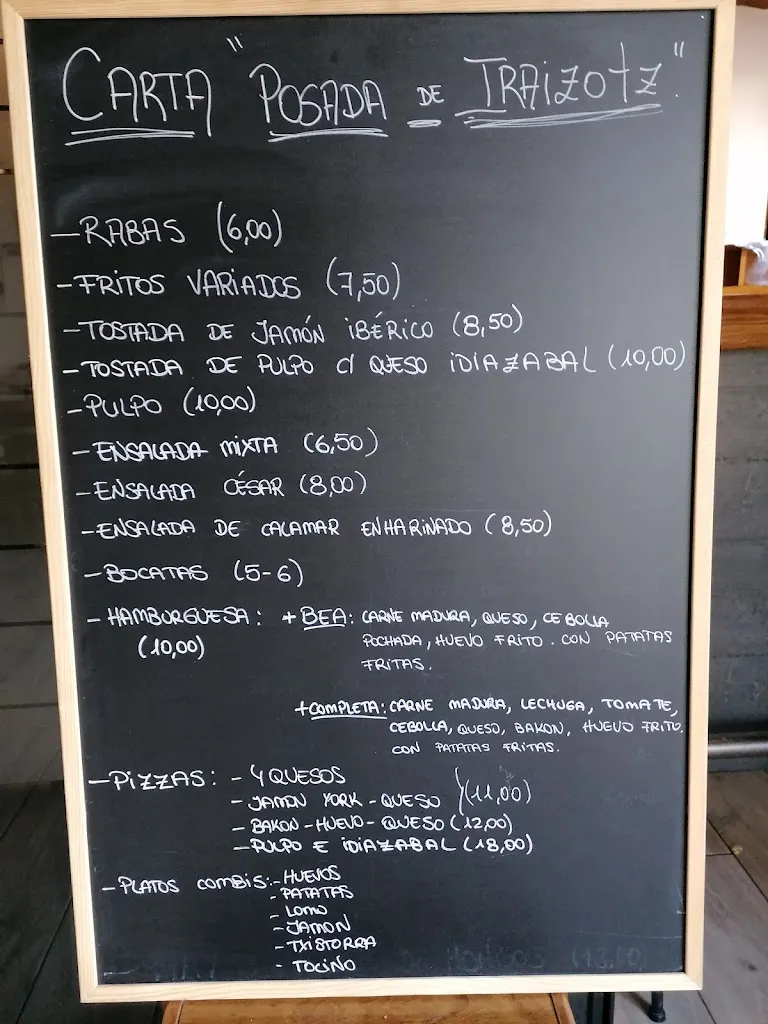 CARTA "POSADA DE TRAIZOTZ."
-RABAS (6,00)
-FRITOS VARIADOS (7,50)
-TOSTADA DE JAMÓN IBÉRICO (8,50)
-TOSTADA DE PULPO C/ QUESO IDIAZABAL (10,00)
-PULPO (10,00)
-ENSALADA MIXTA (6,50)
-ENSALADA CÉSAR (8,00)
-ENSALADA DE CALAMAR ENHARINADO (8,50)
-BOCATAS (5-6)
-HAMBURGUESA: +BEA: CARNE MADURA, QUESO, CEBOLLA
(10,00) POCHADA, HUEVO FRITO. CON PATATAS
FRITAS.
+COMPLETA: CARNE MADURA, LECHUGA, TOMATE,
CEBOLLA, QUESO, BAKON, HUEVO FRITO.
CON PATATAS FRITAS.
-PIZZAS: -4 QUESOS
-JAMON YORK-QUESO (11,00)
-BAKON-HUEVO-QUESO (12,00)
-PULPO E IDIAZABAL (18,00)
-PLATOS COMBIS:-HUEVOS
-PATATAS
-LOMO
-JAMON
-TXISTORRA
-TOCINO